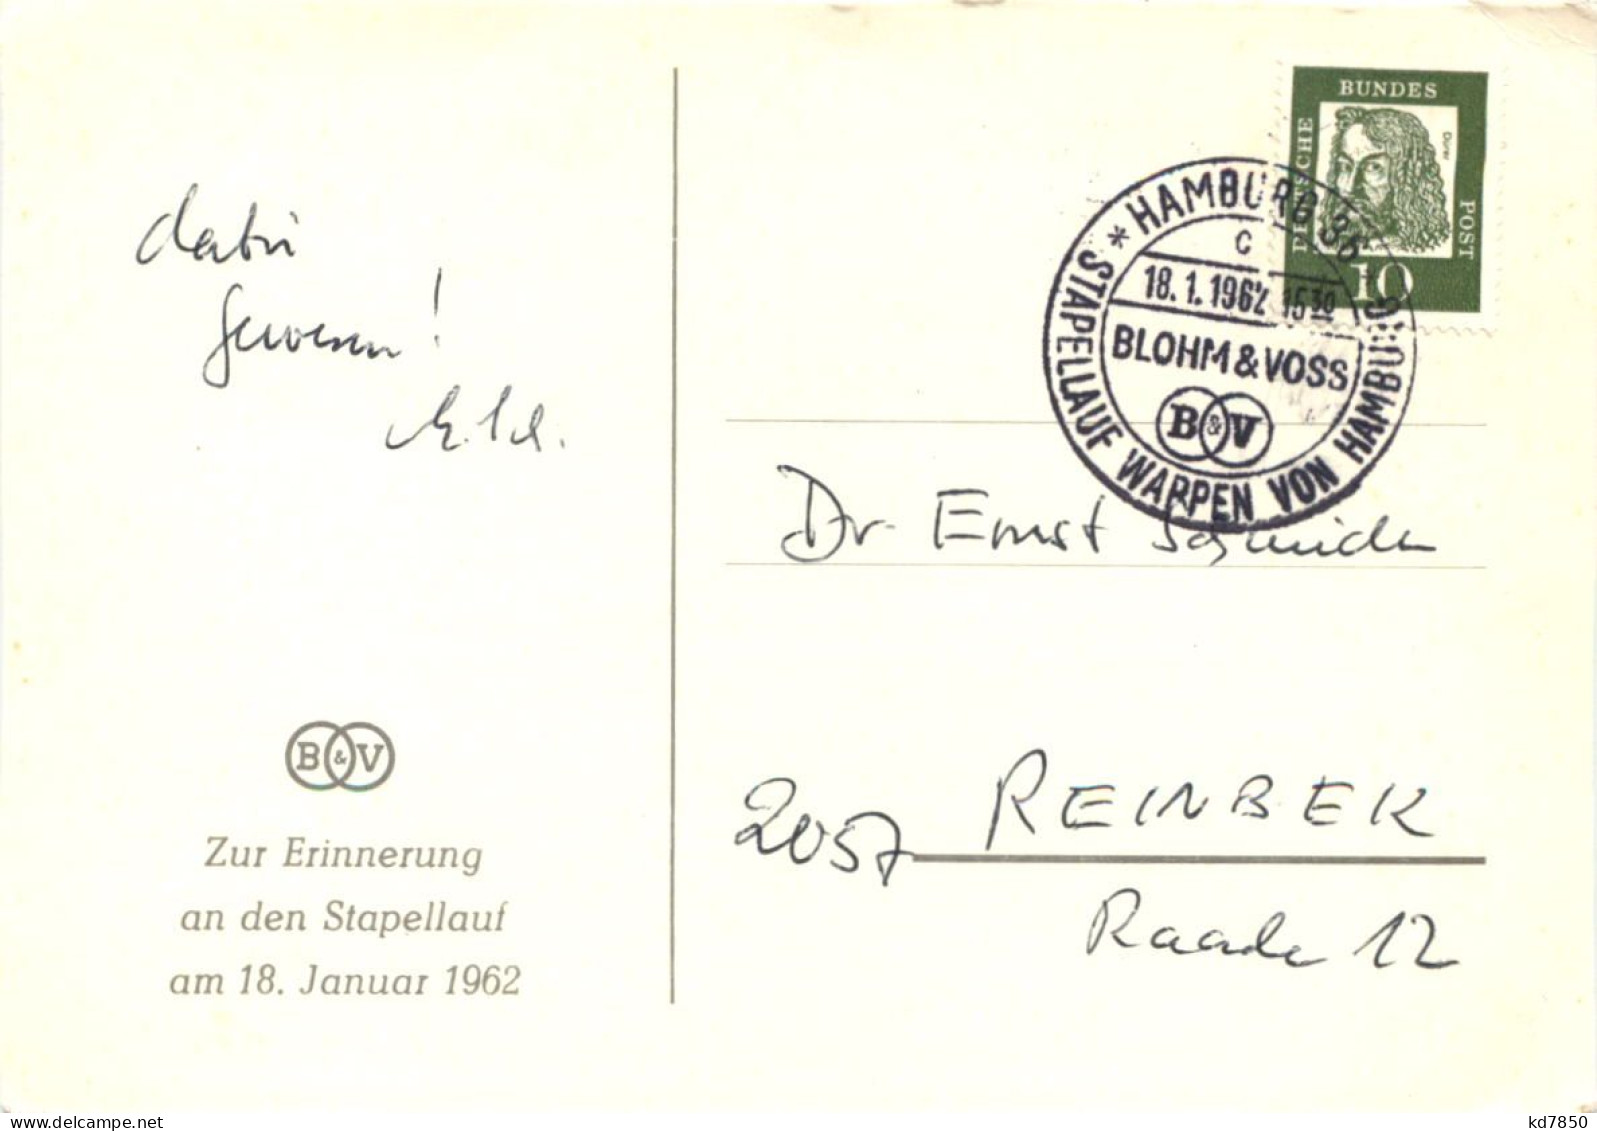 dabei
gewesen!
B&V
Zur Erinnerung
an den Stapellauf
am 18. Januar 1962
DEUTSCHE
BUNDES
POST
Dürer
10
* HAMBURG 36 *
c
18.1.1962 15 30
BLOHM & VOSS
B&V
STAPELLAUF WAPPEN VON HAMBURG
Dr Ernst
2057 REINBEK
Raade 12
kd7850